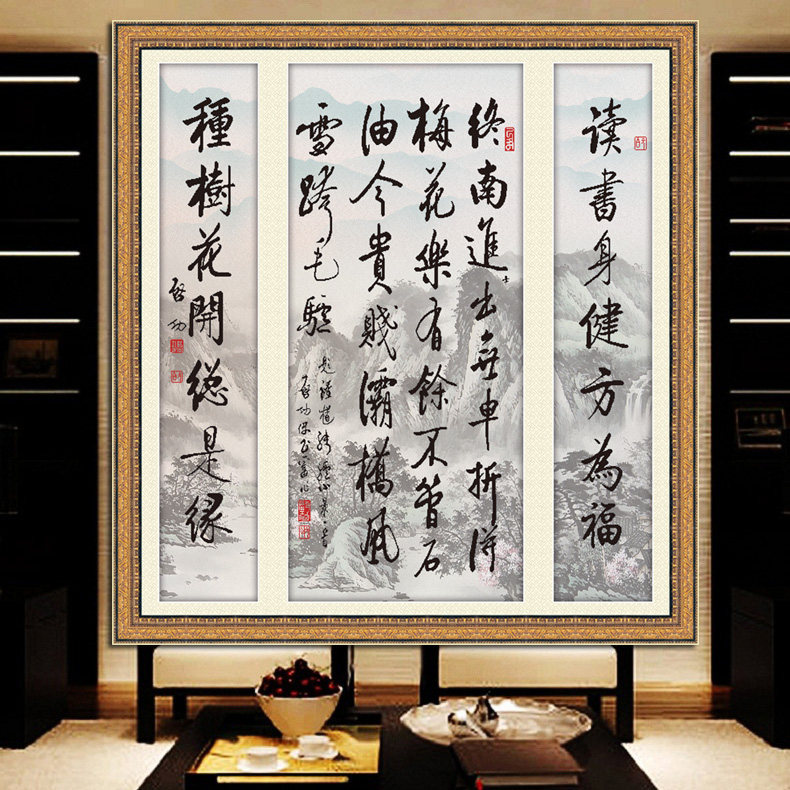 读書身健方為福
終南進士出無車折得
梅花樂有餘不管石
由今貴賤灞橋風
雪跨毛驢
種樹花開總是緣
啓功